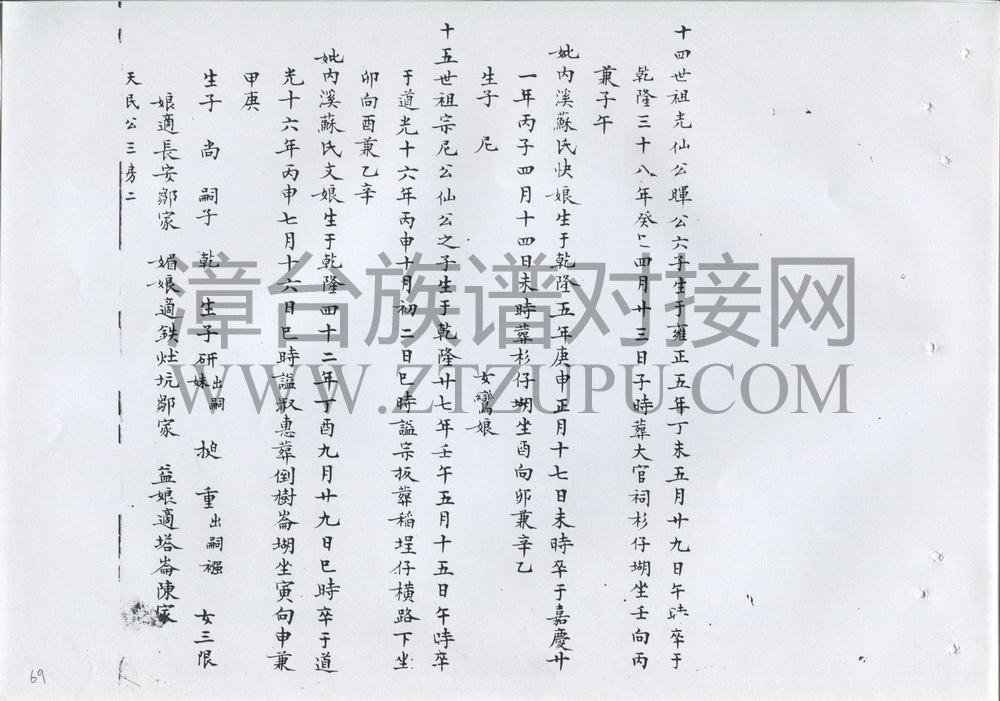 十四世祖光仙公暉公六子生于雍正五年丁未五月廿九日午時卒于
乾隆三十八年癸巳四月廿三日子時葬大官祠杉仔堋坐壬向丙
兼子午
妣內溪蘇氏快娘生于乾隆五年庚申正月十七日未時卒于嘉慶廿
一年丙子四月十四日未時葬杉仔堋坐酉向卯兼辛乙
生子 尼 女鸞娘
十五世祖宗尼公仙公之子生于乾隆廿七年壬午五月十五日午時卒
于道光十六年丙申十月初二日巳時謚宗扳葬稻埕仔橫路下坐
卯向酉兼乙辛
妣內溪蘇氏文娘生于乾隆四十二年丁酉九月廿九日巳時卒于道
光十六年丙申七月十六日巳時謚淑惠葬倒樹崙堋坐寅向申兼
甲庚
生子 尚 嗣子 乾 生子研妹出嗣 挺 重出嗣襁 女三限
娘適長安鄒家 媚娘適鉄灶坑鄒家 益娘適塔崙陳家
天民公三房二
69
漳台族谱对接网
WWW.ZTZUPU.COM